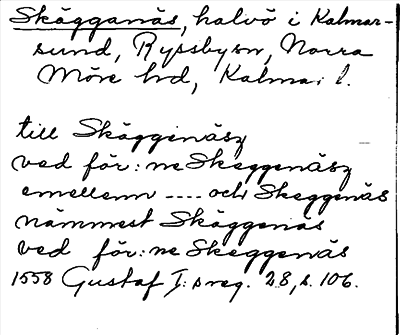 Skäggenäs, halvö i Kalmar-
sund, Ryssby sn, Norra
Möre hd, Kalmar l.
till Skäggenäsz
ved för:ne Skeggenäsz
emellenn .... och Skeggenäs
nämmest Skäggenäs
ved för:ne Skeggenäs
1558 Gustaf I:s reg. 28, s. 106.